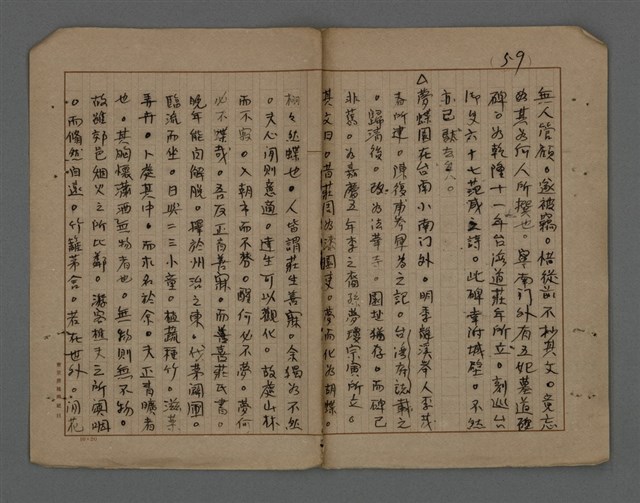 59
無人管顧。遂被竊。惜從前不抄其文。竟忘
為其為何人所撰也。寧南門外有五妃墓道
碑。為乾隆十一年台灣道莊年所立。刻巡台
御史六十七范咸之詩。此碑幸附城壁。不然
亦已
△夢蝶園在台南小南门外。明季龍溪舉人李茂
春所建。陳復甫參軍為之記。台灣府誌載之
。歸清後。改為法華寺。園址猶存。而碑已
非舊。為嘉慶五年李之裔孫夢瓊宗寅所立。
其文曰。昔莊周為漆園吏。夢而化為胡蝶。
栩々然蝶也。人皆謂莊生善寐。余獨為不然
。夫心閒則意適。達生可以觀化。故處山林
而不寂。入朝市而不棼。醒何必不夢。夢何
必不蝶哉。吾友正青善寐。而善善莊氏書。
晚年能自解脫。擇於州治之東。伐茅闢圃。
臨流而坐。日與二三小童。植蔬種竹。滋藥
弄卉。卜處其中。而求名於余。夫正青曠者
也。其胸懷瀟洒無物者也。無物則無不物。
故雖郊邑烟火之所比鄰。遊客樵夫之所闐咽
。而翛然自遠。竹籬茅舍。若在世外。閒花